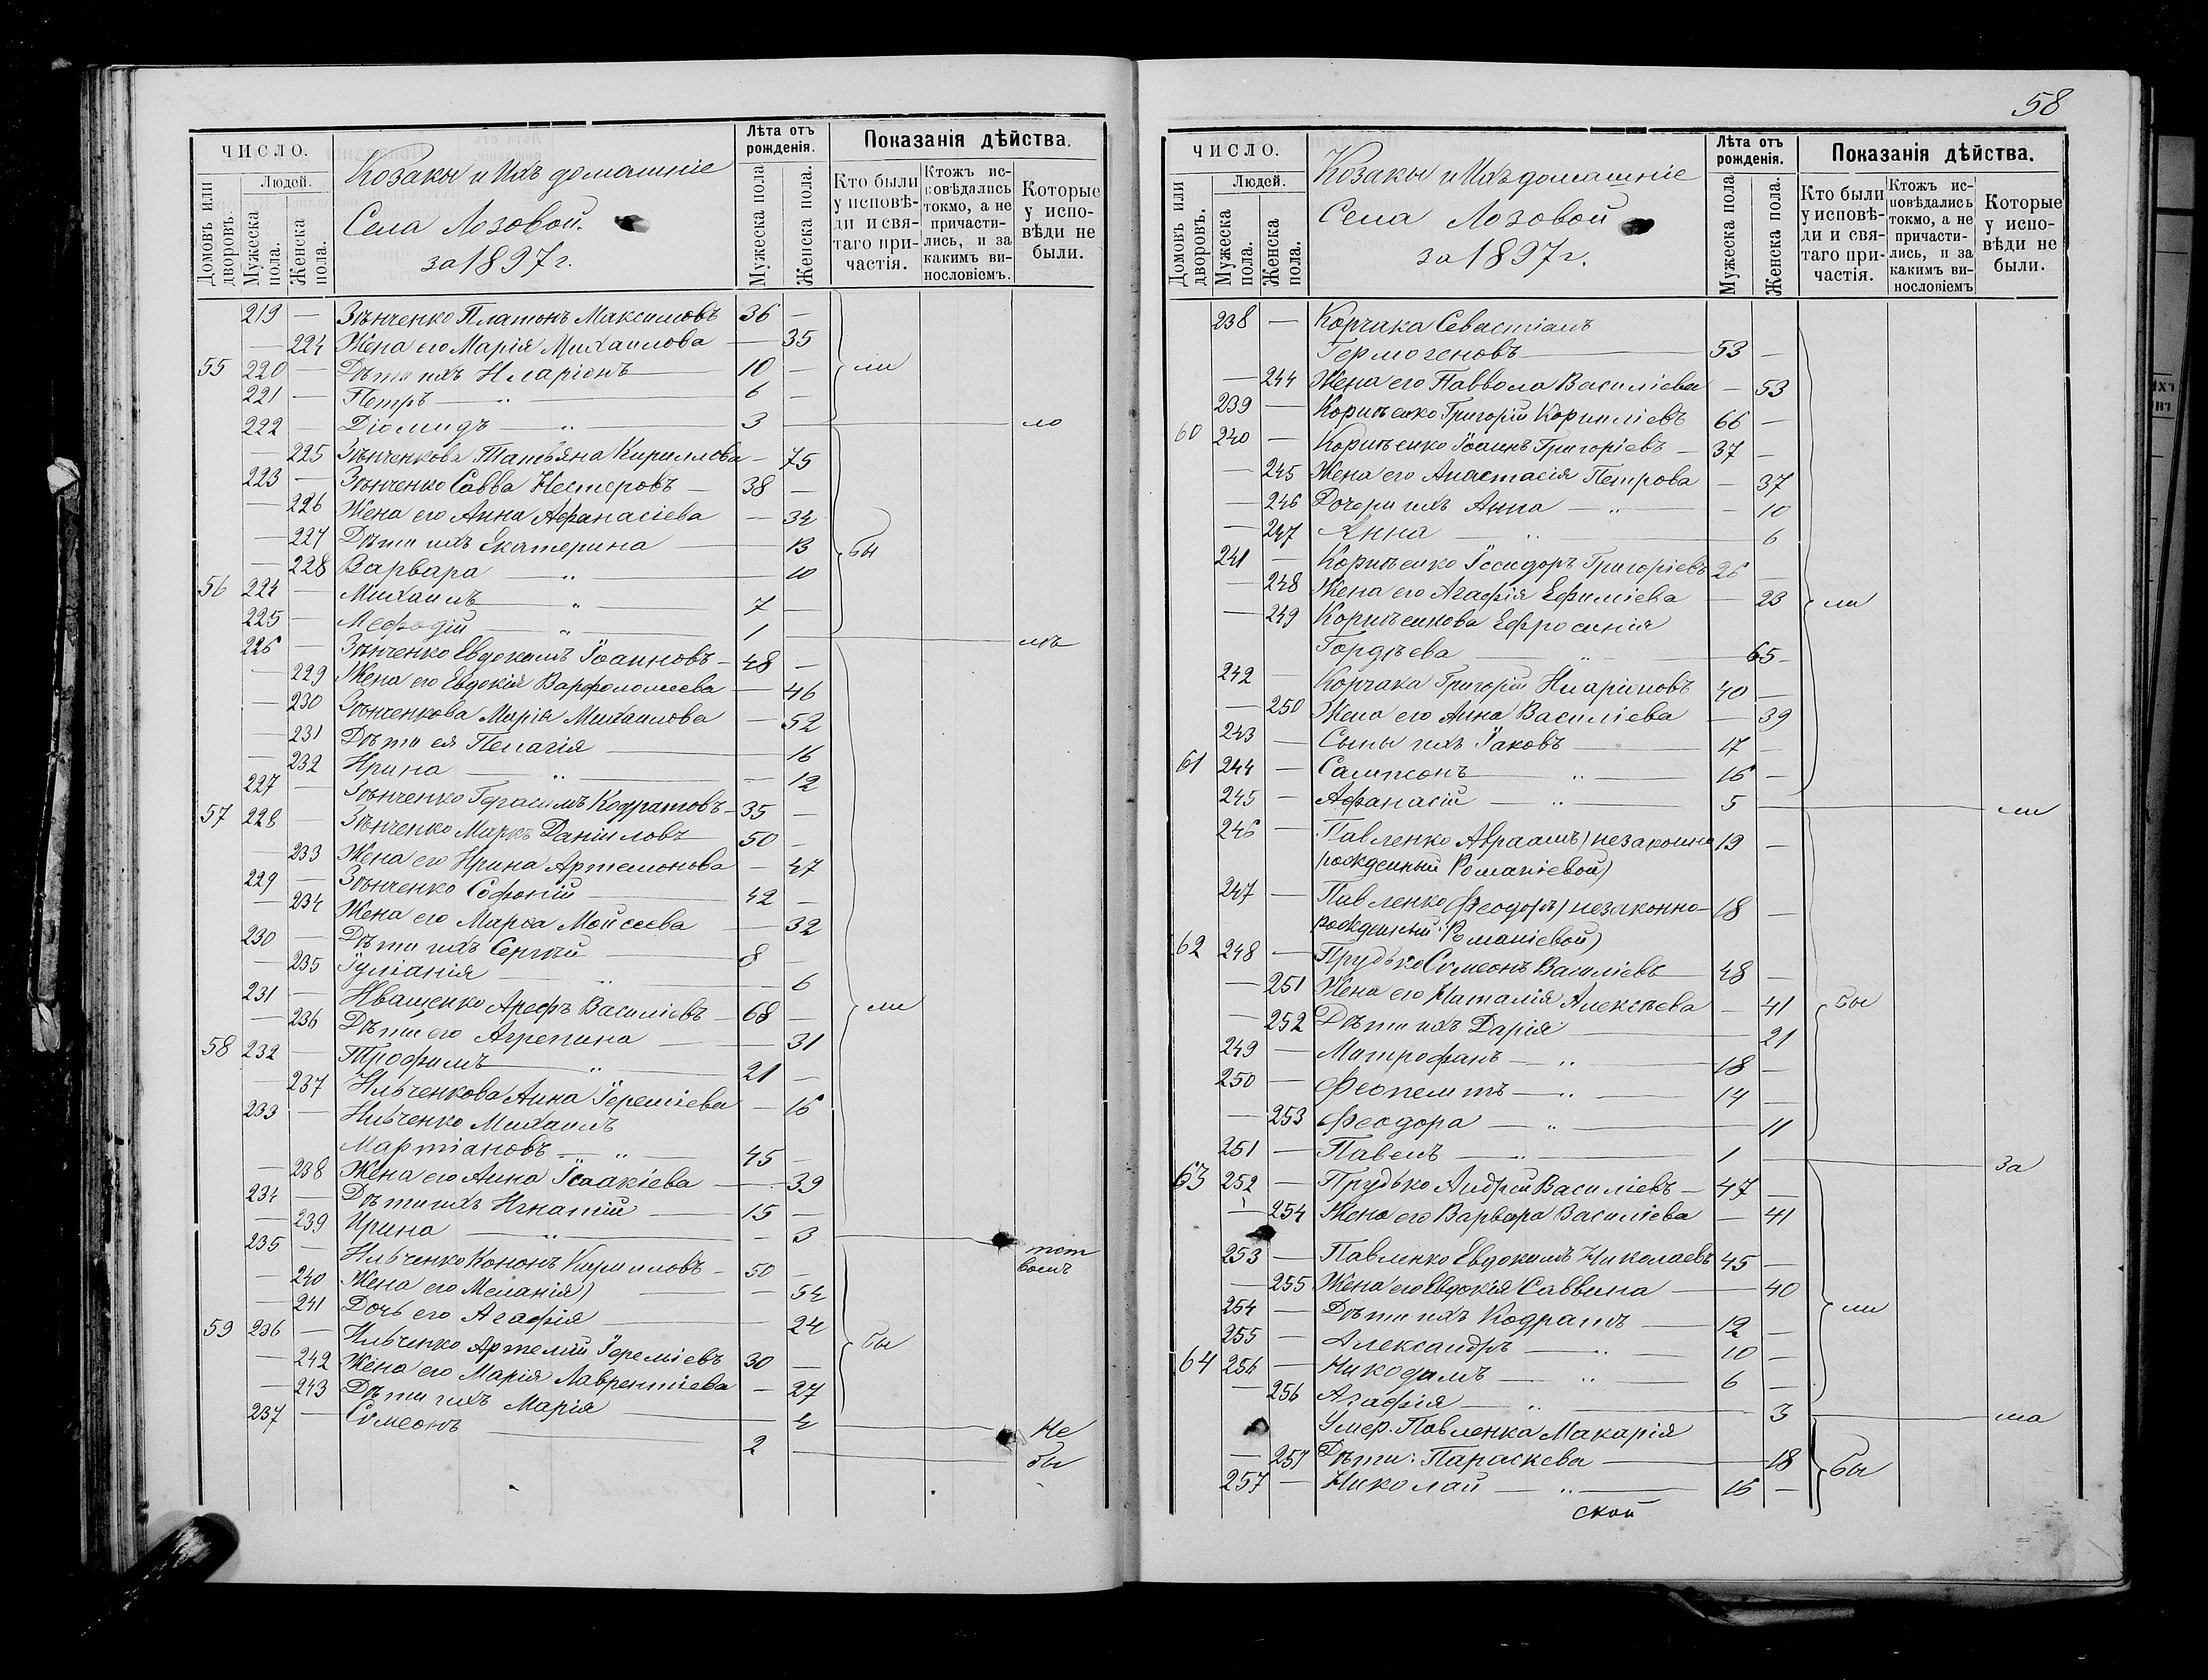 ЧИСЛО.
Домовъ или дворовъ.
Людей.
Мужеска пола.
Женска пола.
Козаки и Ихъ домашніе
Села Лозовой.
за 1897 г.
Лѣта отъ рожденія.
Мужеска пола
Женска пола.
Показанія дѣйства.
Кто были у исповѣди и святаго причастія.
Ктожъ исповѣдались токмо, а не причастились, и за какимъ винословіемъ.
Которые у исповѣди не были.
219 — Зѣнченко Платонъ Максимовъ 36 —
— 224 Жена его Марія Михаилова — 35
55 220 — Дѣти ихъ Иларіонъ 10 — ли
221 — Петръ — „ — 6 —
222 — Діомидъ — „ — 3 — ло
— 225 Зѣнченкова Татьяна Кириллова — 75
223 — Зѣнченко Савва Нестеровъ — 38 —
— 226 Жена его Анна Афанасіева — 34
— 227 Дѣти ихъ Екатерина — 13 бы
— 228 Варвара — „ — 10
56 224 — Михаилъ „ — 7 —
225 — Мефодій — „ — 1 — лъ
226 — Зѣнченко Евдокимъ Іоанновъ — 48 —
— 229 Жена его Евдокія Варфоломеева — 46
— 230 Зѣнченкова Марія Михаилова — 52
— 231 Дѣти ея Пелагія — 16
— 232 Ирина — „ — 12
227 — Зѣнченко Герасимъ Кодратовъ — 35 —
57 228 — Зѣнченко Маркъ Даніиловъ 50 —
— 233 Жена его Ирина Артемонова — 47
229 — Зѣнченко Софоній — 42 —
— 234 Жена его Марѳа Мойсеева — 32
230 — Дѣти ихъ Сергѣй — 8 —
— 235 Іуліанія „ — 6
231 — Иващенко Арефъ Василіевъ — 68 — ли
— 236 Дѣти его Агрепина — 31
58 232 — Трофимъ — „ — 21 —
— 237 Ильченкова Анна Іереміева — 16
233 — Ильченко Михаилъ
Мартіановъ — „ — 45 —
— 238 Жена его Анна Ісаакіева — 39
234 — Дѣти ихъ Игнатій — 15 —
— 239 Ирина — „ — 3
235 — Ильченко Кононъ Кирилловъ — 50 —
— 240 Жена его Меланія) — 54
— 241 Дочь его Агафія — 24
59 236 — Ильченко Артемій Іереміевъ 30 — бы
— 242 Жена его Марія Лаврентіева — 27
— 243 Дѣти ихъ Марія — 4 Не
237 — Симеонъ — 2 — бы
58
ЧИСЛО.
Домовъ или дворовъ.
Людей.
Мужеска пола.
Женска пола.
Козаки и Ихъ домашніе
Села Лозовой
за 1897 г.
Лѣта отъ рожденія.
Мужеска пола
Женска пола.
Показанія дѣйства.
Кто были у исповѣди и святаго причастія.
Ктожъ исповѣдались токмо, а не причастились, и за какимъ винословіемъ
Которые у исповѣди не были.
238 — Корчака Севастіанъ
Гермогеновъ — 53 —
— 244 Жена его Паввола Василіева — 53
239 — Корніенко Григорій Корниліевъ 66 —
60 240 — Корніенко Іоаннъ Григоріевъ — 37 —
— 245 Жена его Анастасія Петрова — 37
— 246 Дочери ихъ Анна — „ — 10
— 247 Анна — „ — 6
241 — Корніенко Іссидоръ Григоріевъ 26 —
— 248 Жена его Агафія Ефиміева — 23 ли
— 249 Корніенкова Ефросинія
Гордѣева „ — 65 —
242 — Корчака Григорій Иларіоновъ 40 —
— 250 Жена его Анна Василіева — 39
243 — Сыны ихъ Іаковъ — 17 —
61 244 — Сампсонъ „ — 16 —
245 — Афанасій — „ — 5 — ли
246 — Павленко Авраамъ) незаконно 19 —
рожденный Романіевой)
247 — Павленко (Феодоръ) незаконно — 18 —
рожденный Романіевой)
62 248 — Прудько Симеонъ Василіевъ — 48 —
— 251 Жена его Наталія Алексѣева — 41 бы
— 252 Дѣти ихъ Дарія — 21
249 — Митрофанъ — „ — 18 —
250 — Феопемптъ — „ — 14 —
— 253 Феодора — „ — 11
251 — Павелъ — „ — 1 — за
63 252 — Прудько Андрей Василіевъ — 47 —
— 254 Жена его Варвара Василіева — 41
253 — Павленко Евдокимъ Николаевъ 45 —
— 255 Жена его Евдокія Саввина — 40
254 — Дѣти ихъ Кодратъ — 12 — ли
255 — Александръ — „ — 10 —
64 256 — Никодимъ — „ — 6 —
— 256 Агафія — „ — 3 — ша
Умер. Павленка Макарія
— 257 Дѣти: Параскева — 18 бы
257 — Николай — „ — 16 —
ской